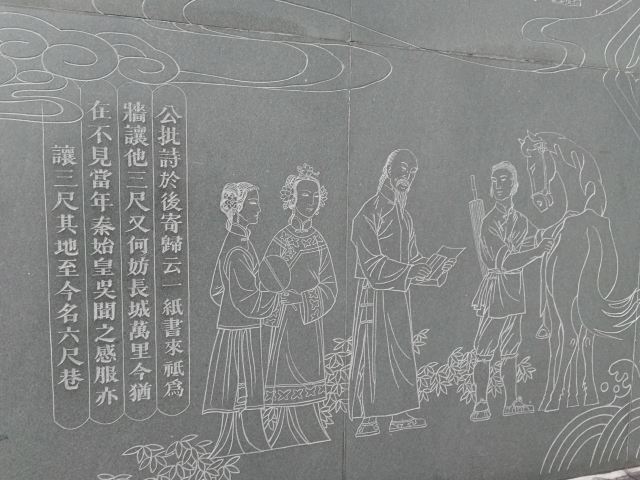 公批詩於後寄歸云一紙書來祇為
牆讓他三尺又何妨長城萬里今猶
在不見當年秦始皇吳聞之感服亦
讓三尺其地至今名六尺巷